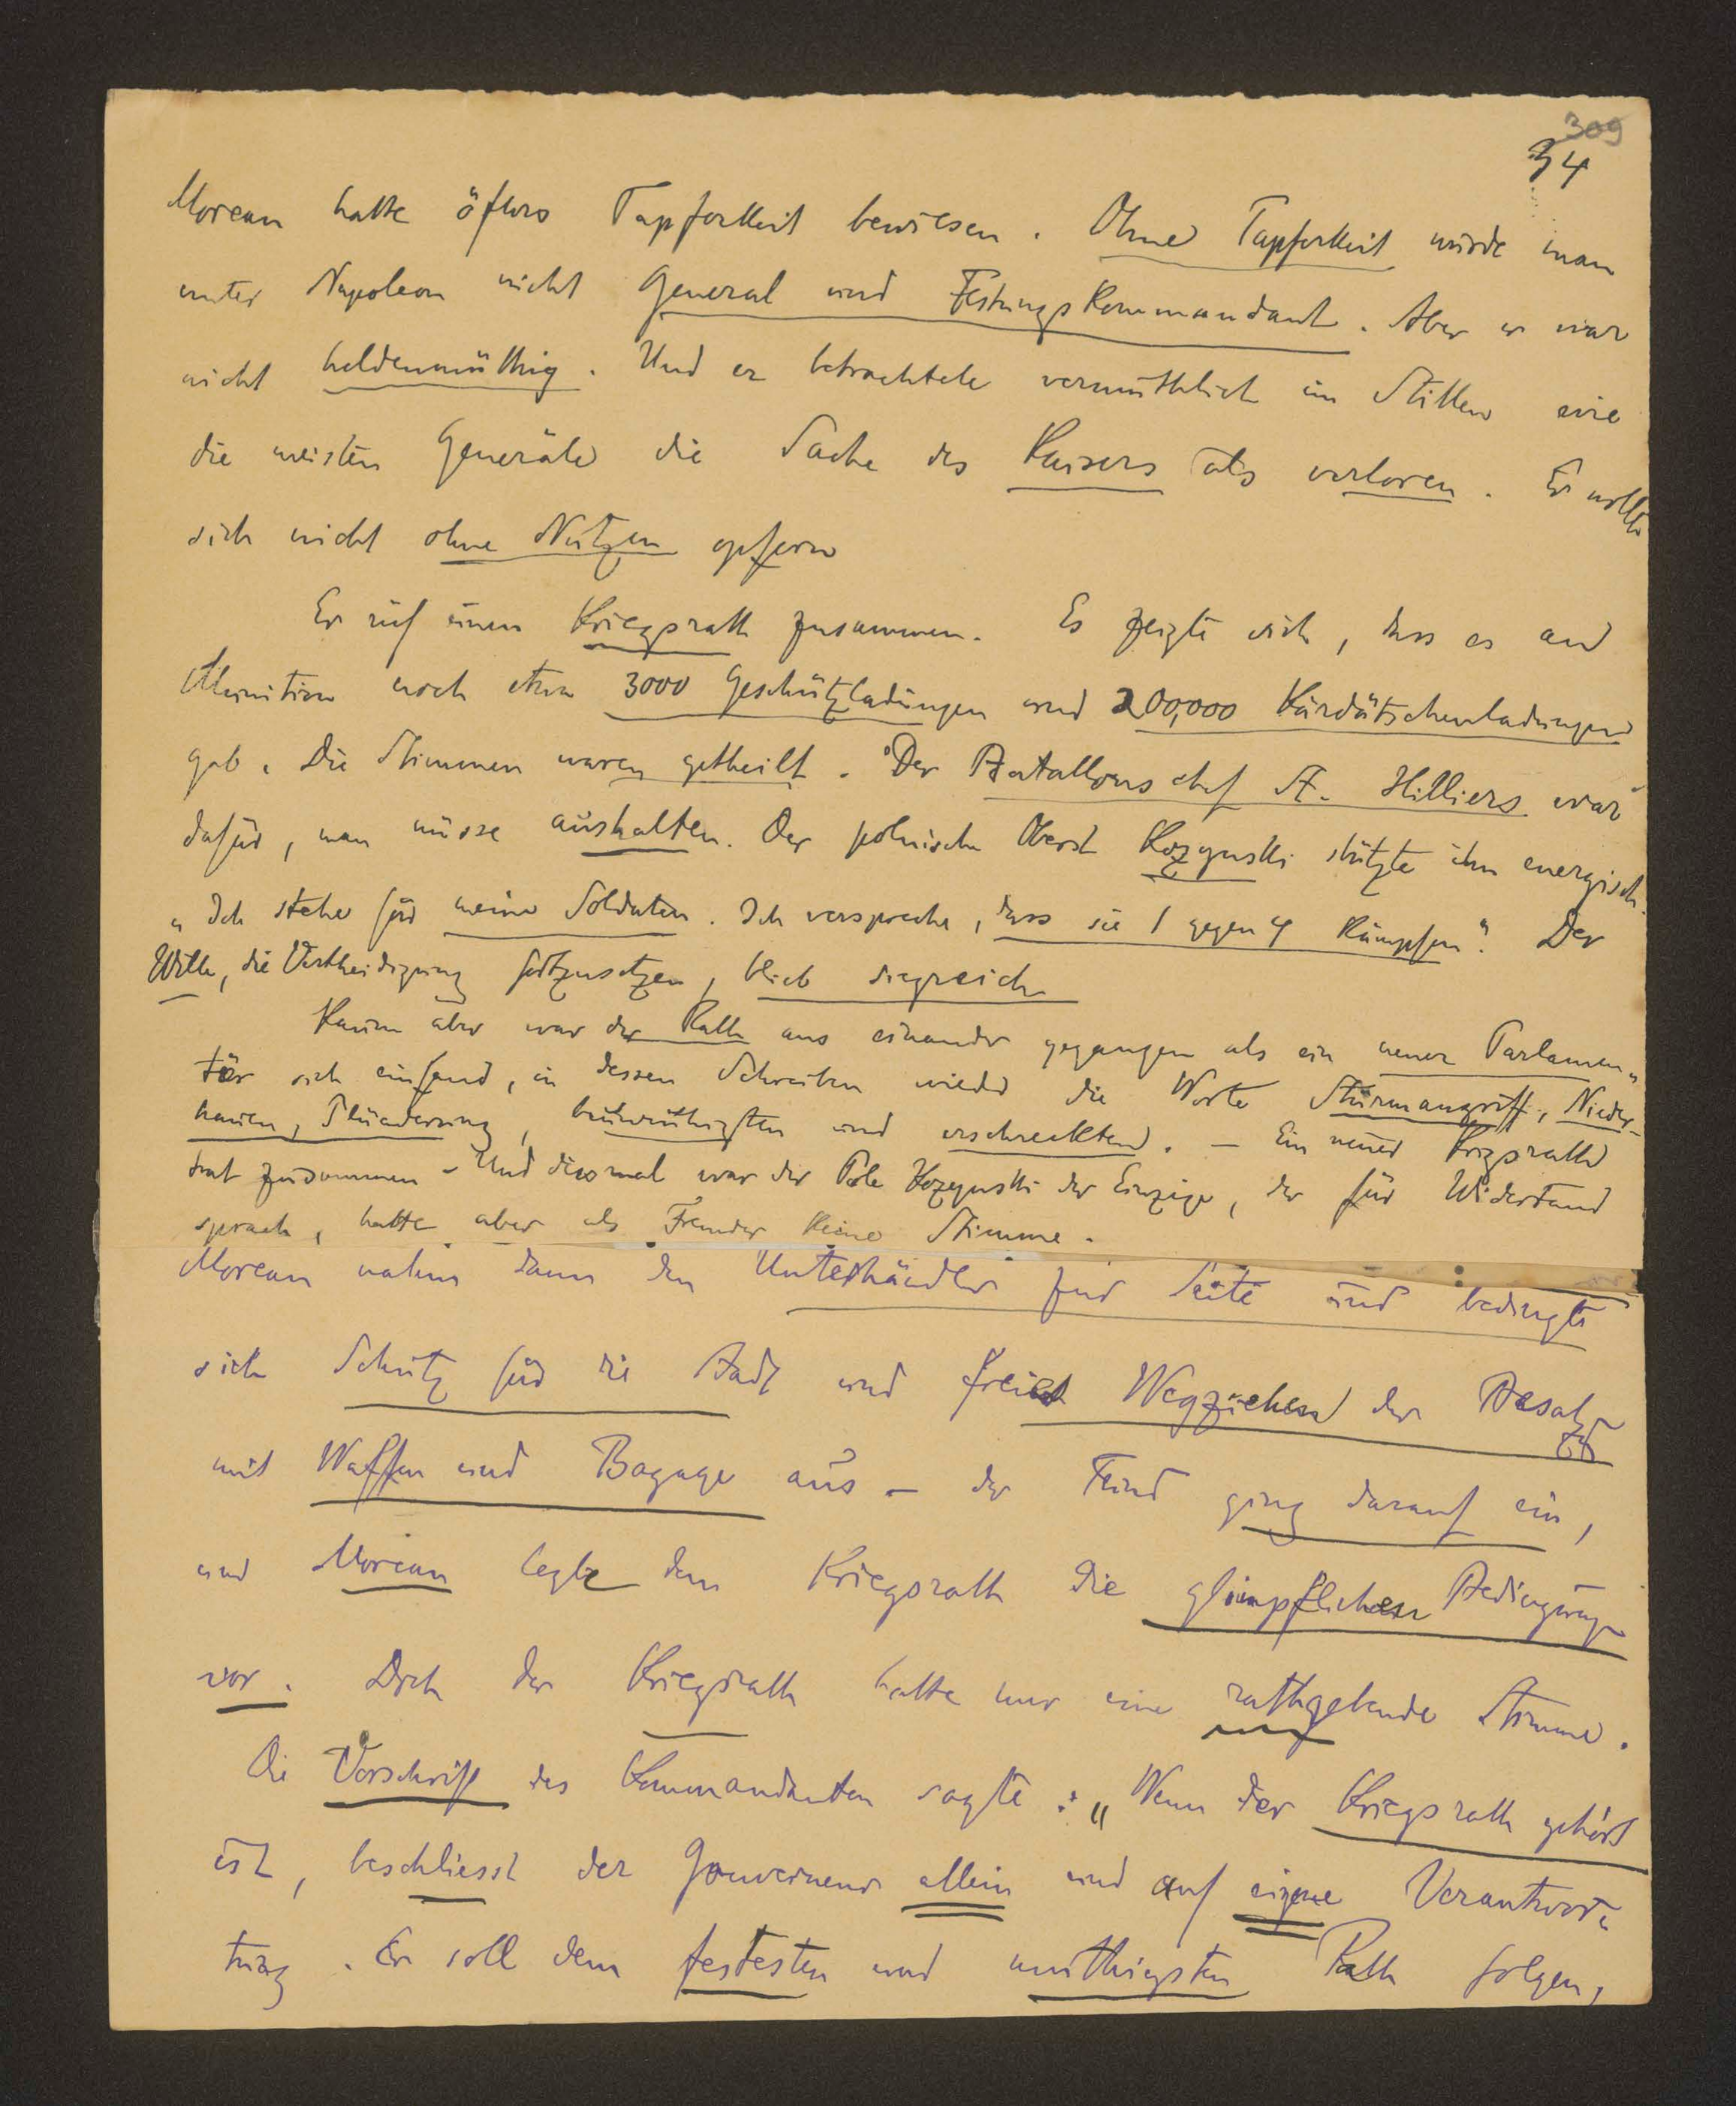 309
34
Moreau hatte öfters Tapferkeit bewiesen. Ohne Tapferkeit wurde man
unter Napoleon nicht General und Festungskommandant. Aber er war
nicht heldenmüthig. Und er betrachtete vermuthlich im Stillen wie
die meisten Generäle die Sache des Kaisers als verloren. Er wollte
sich nicht ohne Nutzen opfern
Er rief einen Kriegsrath zusammen. Es zeigte sich, dass es an
Munition noch etwa 3000 Geschützladungen und 200,000 Kardätschenladungen
gab. Die Stimmen waren getheilt. Der Batallonschef St. Hilliers war
dafür, man müsse aushalten. Der polnische Oberst Kozynski stützte ihn energisch.
„Ich stehe für meine Soldaten. Ich verspreche, dass sie 1 gegen 4 kämpfen". Der
Wille, die Vertheidigung fortzusetzen, blieb siegreich
Kaum aber war der Rath aus einander gegangen als ein neuer Parlamen-
tär sich einfand, in dessen Schreiben wieder die Worte Sturmangriff, Nieder-
hauen, Plünderung, beunruhigten und erschreckten. – Ein neuer Krigsrath
trat zusammen – Und diesmal war der Pole Kozynski der Einzige, der für Widerstand
sprach, hatte aber als Fremder keine Stimme.
Moreau nahm dann den Unterhändler zur Seite und bedingte
sich Schutz für die Stadt und freies Wegziehen der Besatzg
mit Waffen und Bagage aus – der Feind ging darauf ein,
und Moreau legte dem Kriegsrath die glimpflichen Bedingungen
vor. Doch der Kriegsrath hatte nur eine rathgebende Stimme.
Die Vorschrift des Kommandanten sagte: „Wenn der Kriegsrath gehört
ist, beschliesst der Gouverneur allein und auf eigene Verantwor-
tung. Er soll dem festesten und muthigsten Rath folgen,